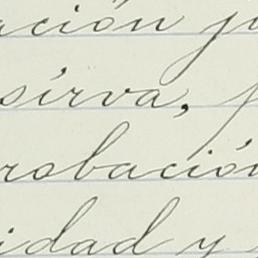 ación ju
sírva, p
robación
idad y